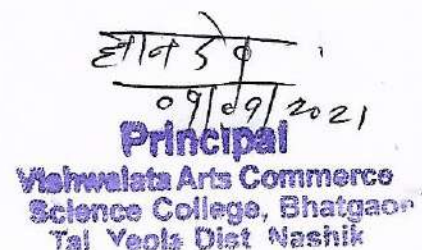 ज्ञानदेव
09/09/2021
Principal
Vishwalata Arts Commerce
Science College, Bhatgaon
Tal Yeola Dist Nashik